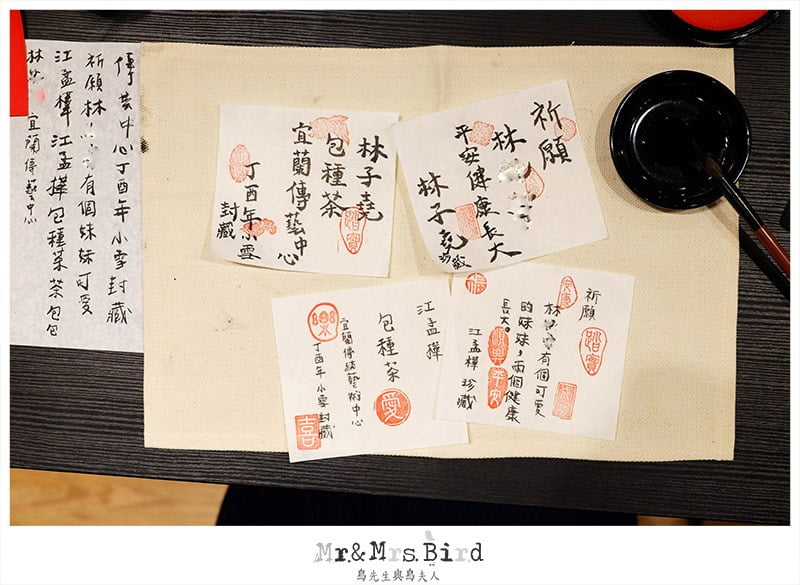 傳芸中心丁酉年小雪封藏
祈願林
有個妹妹可愛
江孟樺 江孟樺包種菜茶包包
林
宜蘭傳藝中心
林子堯
包種茶
宜蘭傳藝中心
丁酉年小雪
封藏
踏實
祈願
林
平安健康長大
林子堯
珍藏
江孟樺
包種茶
宜蘭傳統藝術中心
丁酉年 小雪封藏
樂
愛
喜
祈願
林
有個可愛
的妹妹，兩個健康
長大。
江孟樺 珍藏
福
踏實
平安
Mr.&Mrs.Bird
鳥先生與鳥夫人